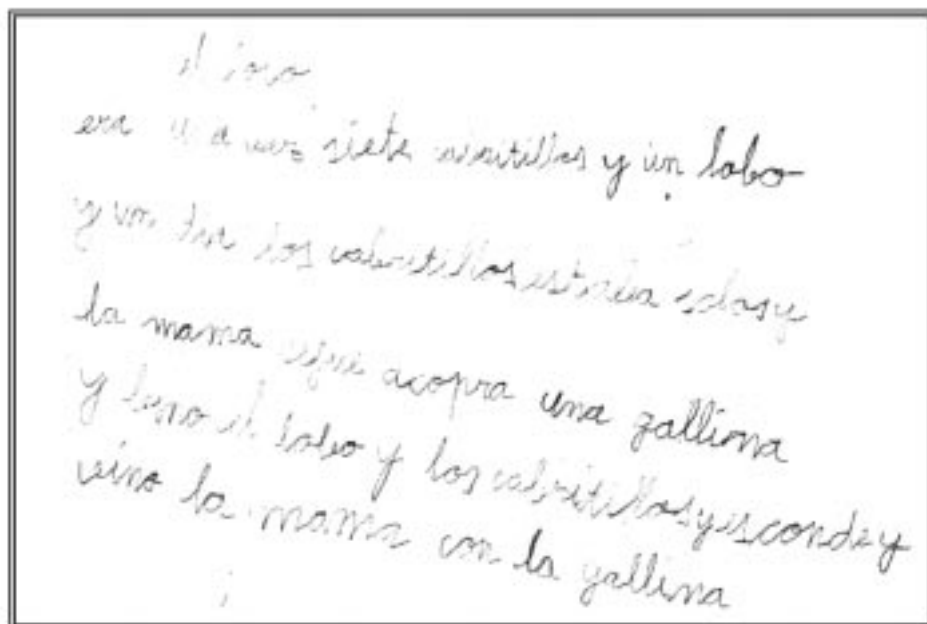 el
era u a vez siete cabritillos y un lobo
y un los cabritillos estaba solos y
la mama acopra una galliona
y beno el lobo y los cabritillos y es conde y
veino la mama con la gallina